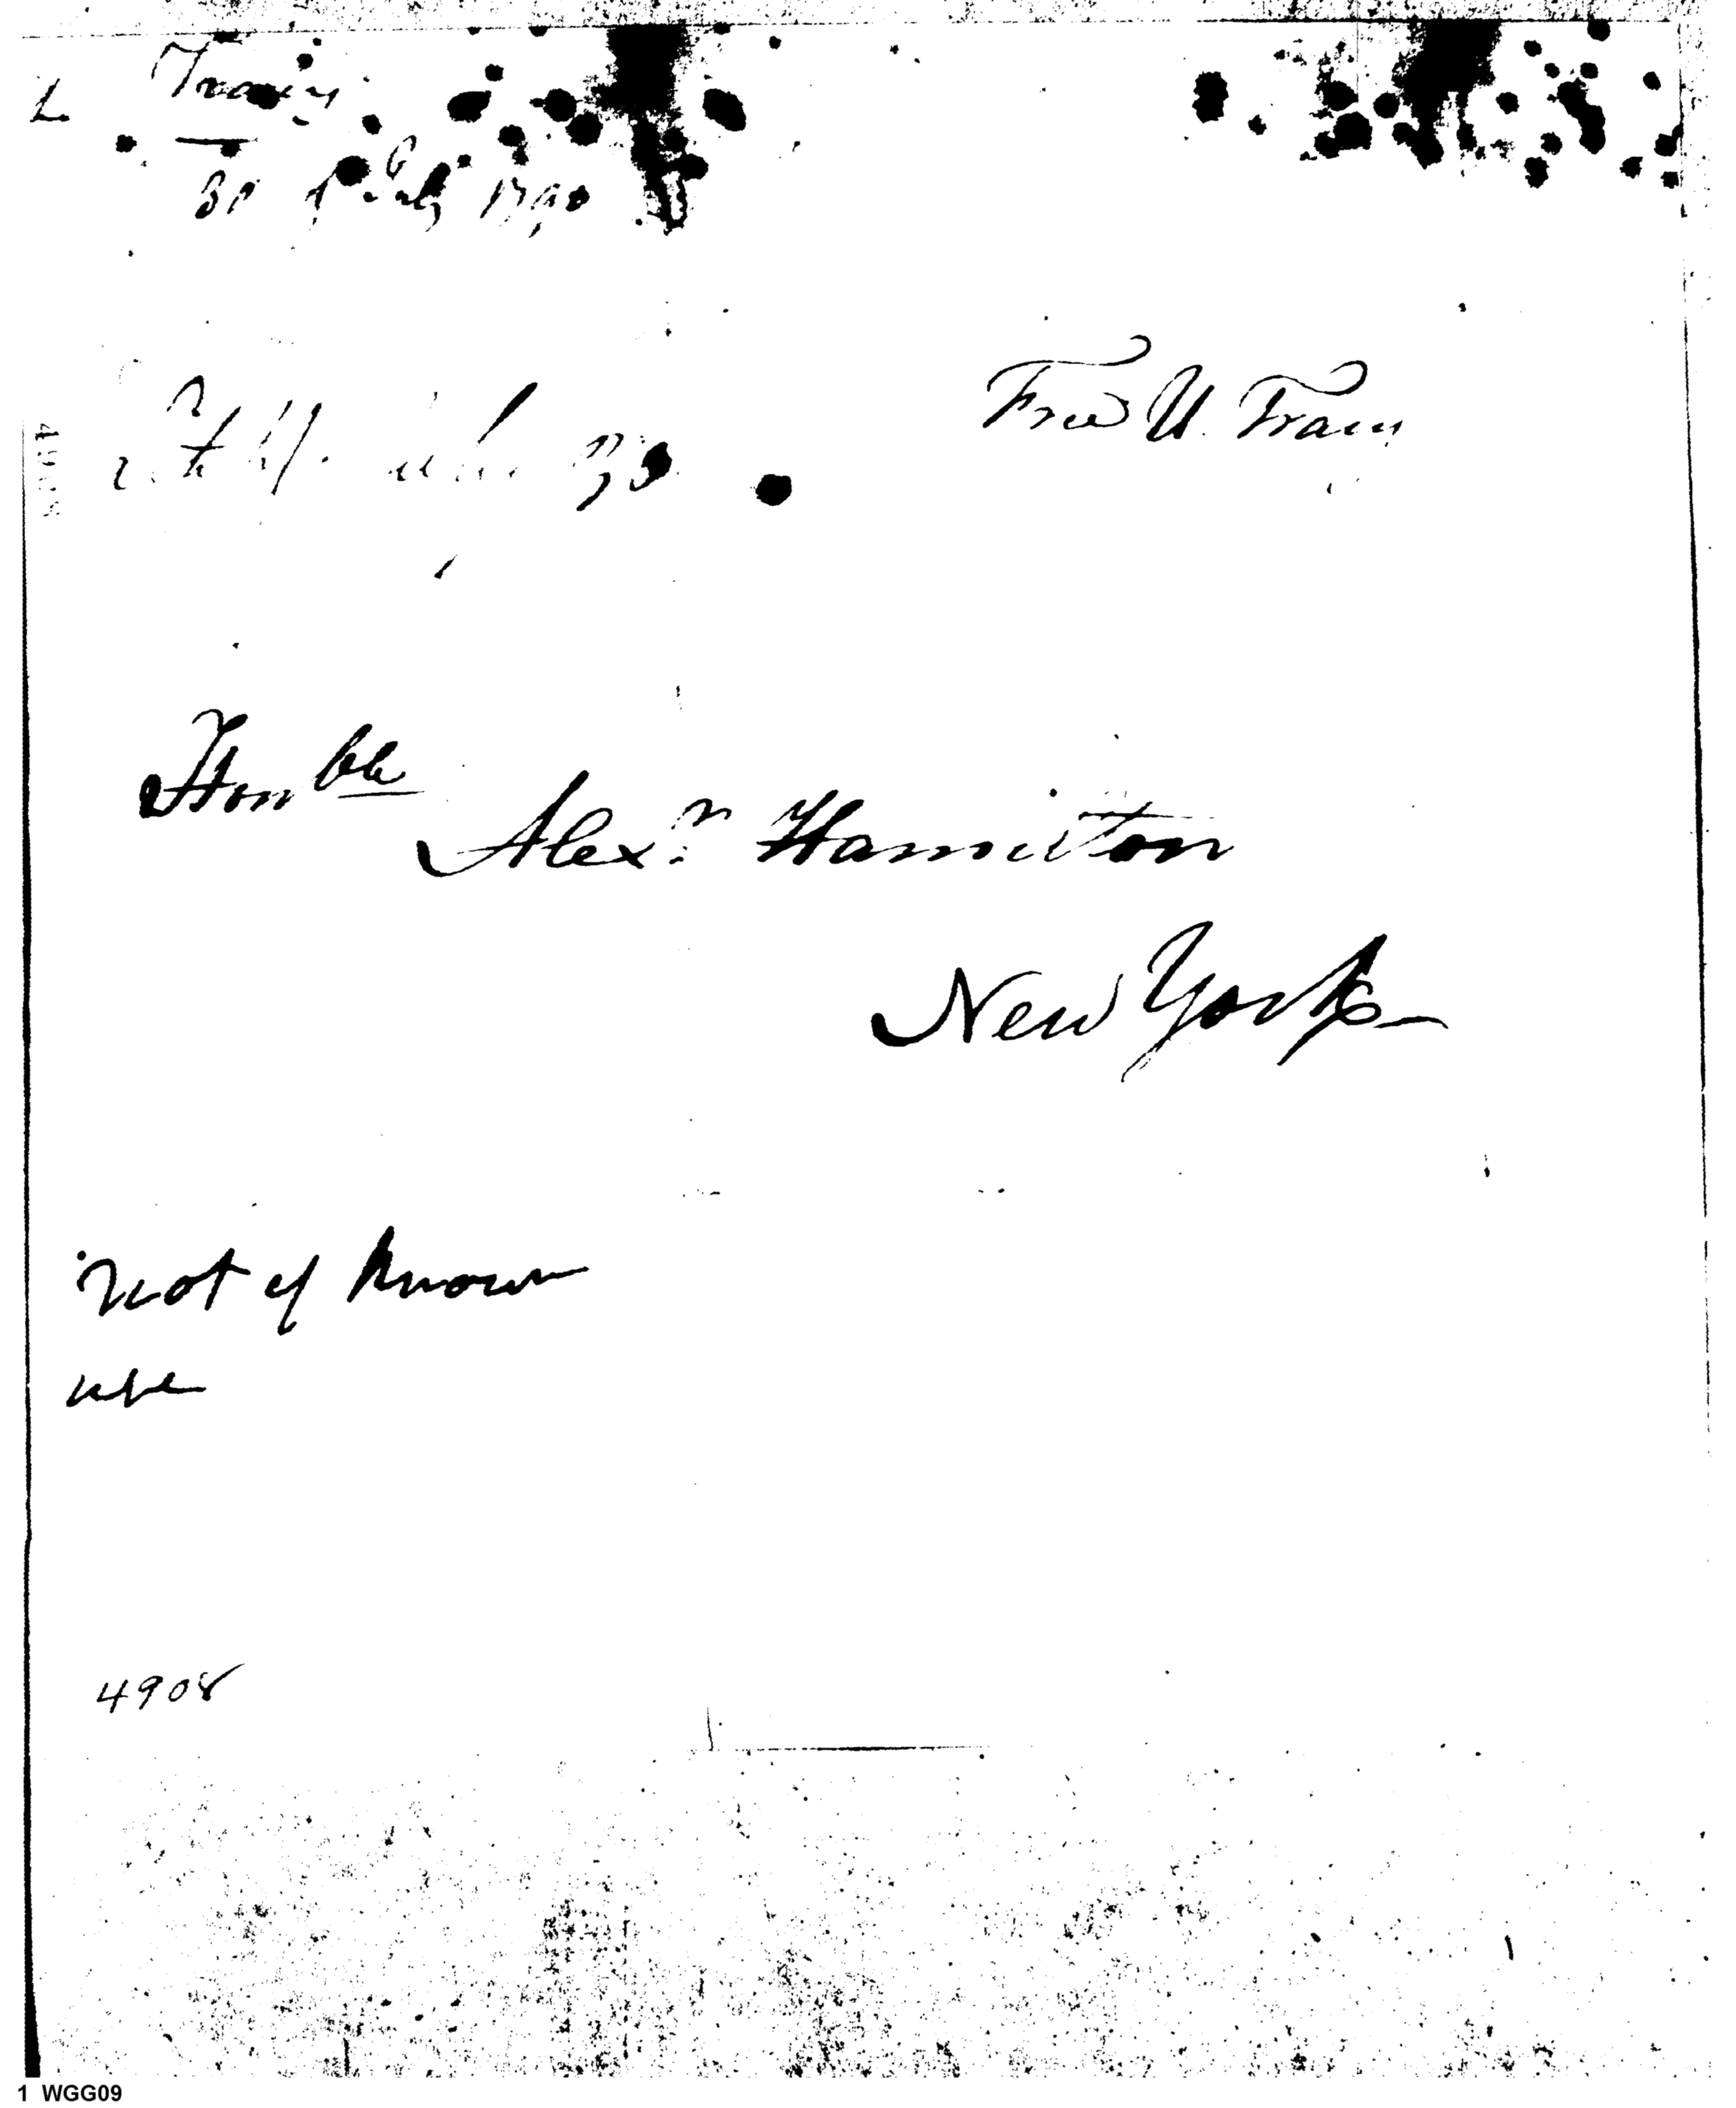 Tracy
30 July 1790
Free U. Tracy
Hon^ble
Alex^r Hamilton
New York
not of known
use
4908
1 WGG09